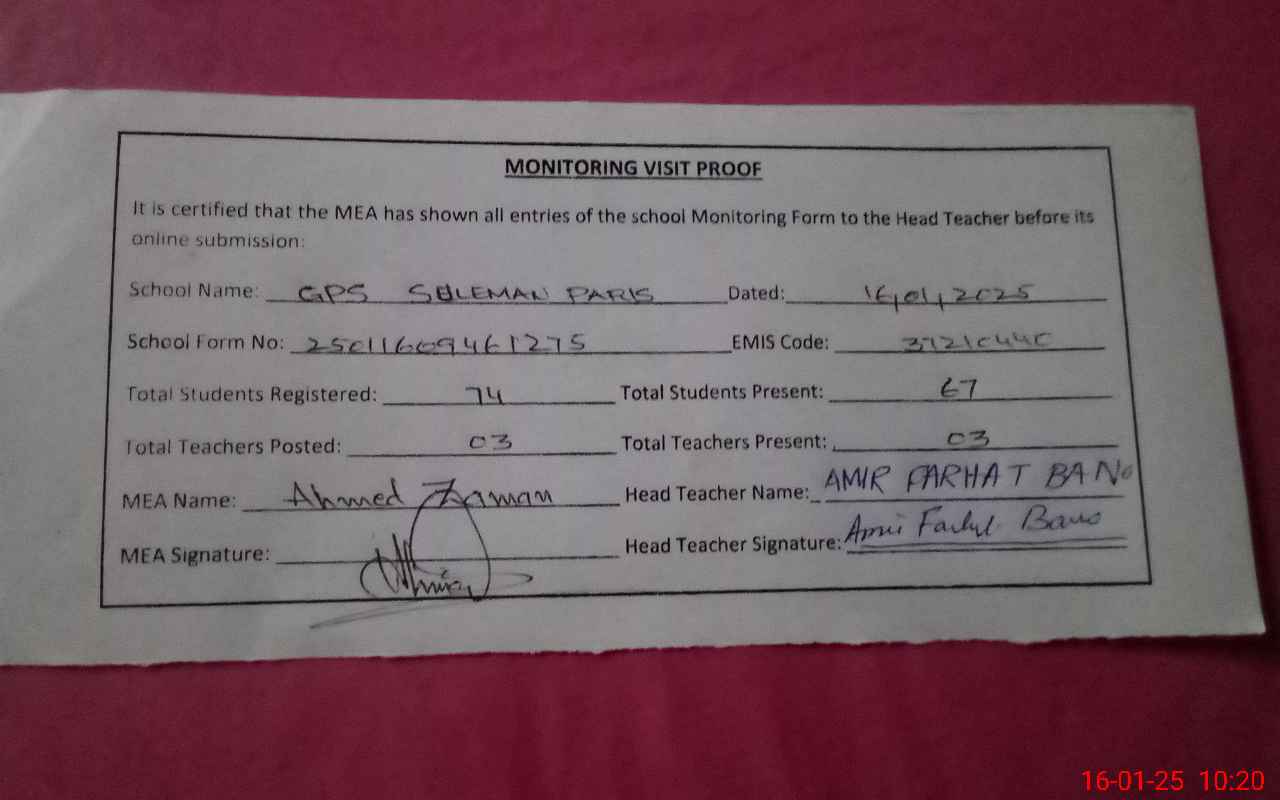 MONITORING VISIT PROOF
It is certified that the MEA has shown all entries of the school Monitoring Form to the Head Teacher before its
online submission:
School Name: GPS SULEMAN PARIS Dated: 16,01,2025
School Form No: 250116609461275 EMIS Code: 37210440
Total Students Registered: 74 Total Students Present: 67
Total Teachers Posted: 03 Total Teachers Present: 03
MEA Name: Ahmed Zaman Head Teacher Name: AMIR FARHAT BANO
MEA Signature: Head Teacher Signature: Amir Farhat Bano
16-01-25 10:20